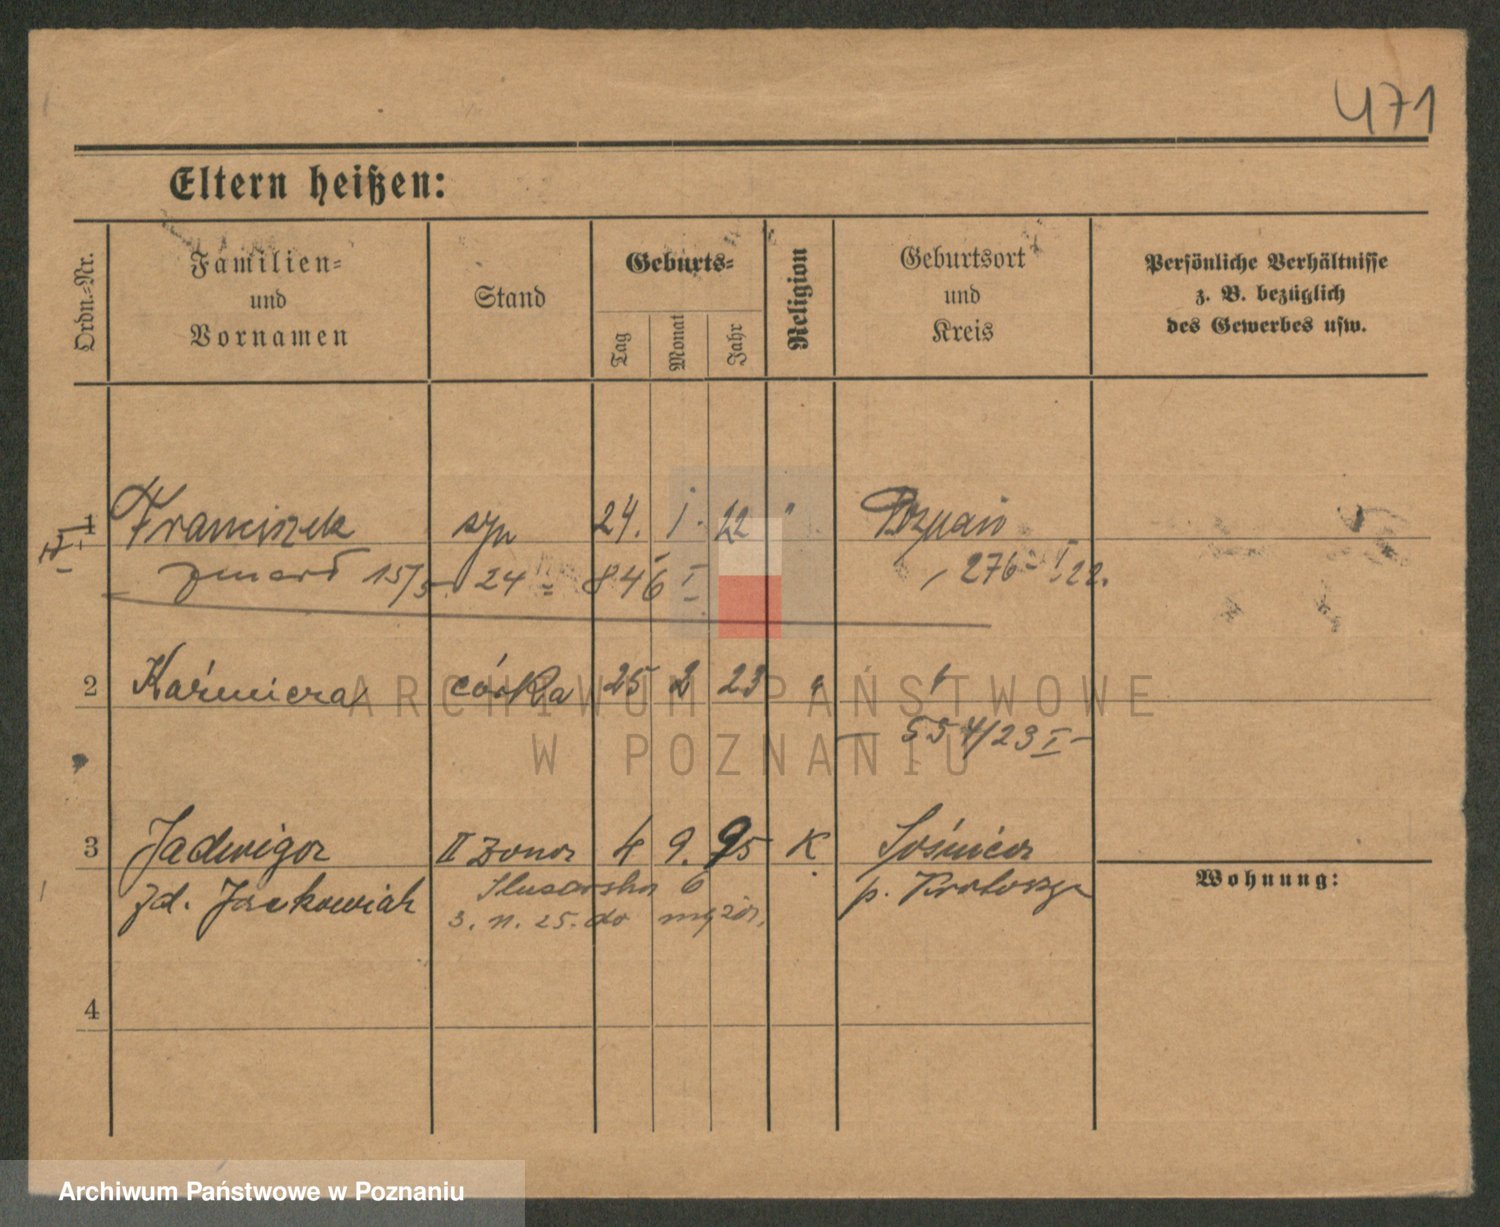 471
Eltern heißen:
Ordn.-Nr.
Familien-
und
Vornamen
Stand
Geburts-
Tag
Monat
Jahr
Religion
Geburtsort
und
Kreis
Persönliche Verhältnisse
z. B. bezüglich
des Gewerbes usw.
1 Franciszek syn 24. 1. 22 " Poznań
zmarł 15/5 24 846 I 276 I 22.
2 Kaźmiera córka 25 2 23 " "
554/23 I
3 Jadwiga II żona 4 9. 95 K Sośnica
zd. Jackowiak Ślusarska 6 p. Krotoszyn
3. 11. 25. do męża.
Wohnung:
4
ARCHIWUM PAŃSTWOWE
W POZNANIU
Archiwum Państwowe w Poznaniu